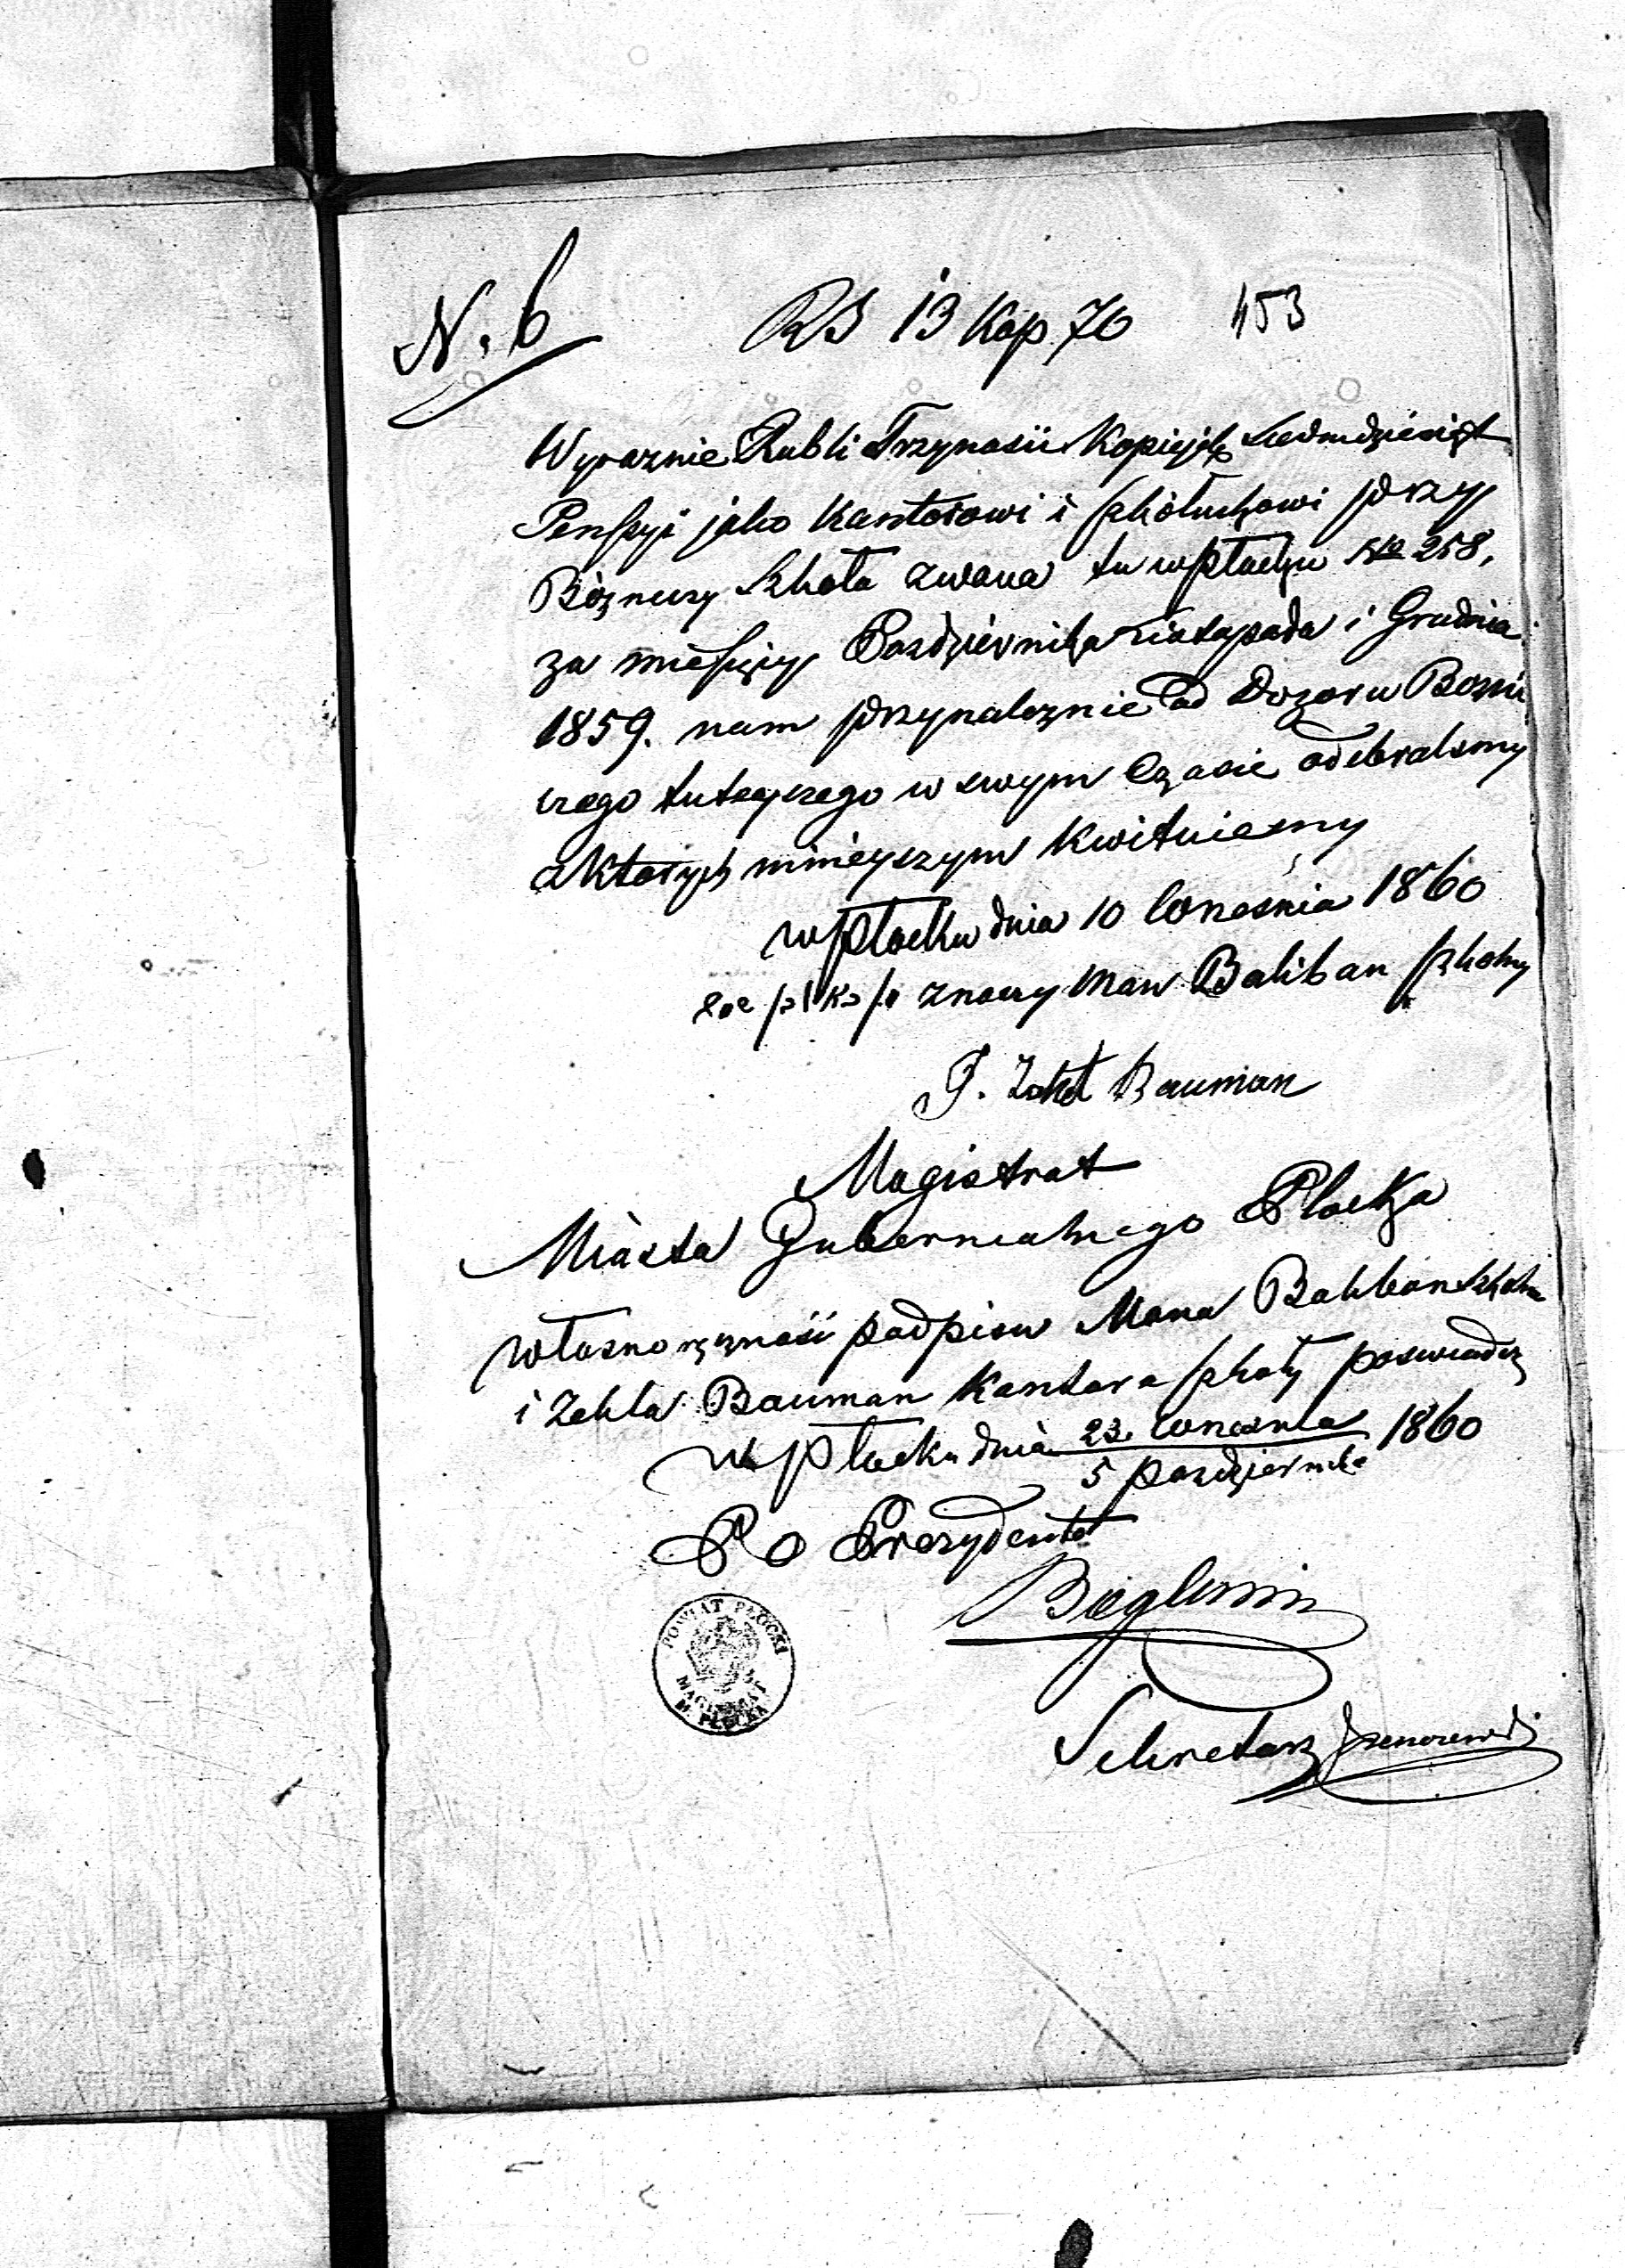 N. 6
RS 13 Kop. 70
453
Wyraznie Rubli Trzynascie Kopiejek Siedmdziesiąt
Pensyi jako Kantorowi i szkolnikowi przy
Bóznicy Szkoła zwana tu w Płocku No 258,
za miesięcy Pazdziernika Listopada i Grudnia
1859. nam przynaleznie od Dozoru Bozni
czego tuteyszego w swym Czasie odebralismy
z ktorych ninieyszym Kwituiemy
w Płocku dnia 10 Wrzesnia 1860
znaczy Man Baliban szkolny
Bauman
Magistrat
Miasta Gubernialnego Płocka
własnoręczność podpisu Mana Baliban
i Zekla Bauman Kantora szkoły poswiadcz
w Płocku dnia 23 Wrzesnia 1860
5 pazdziernika
P O Prezydenta
Sekretarz
POWIAT PŁOCKI
MAGISTRAT
M. PŁOCKA